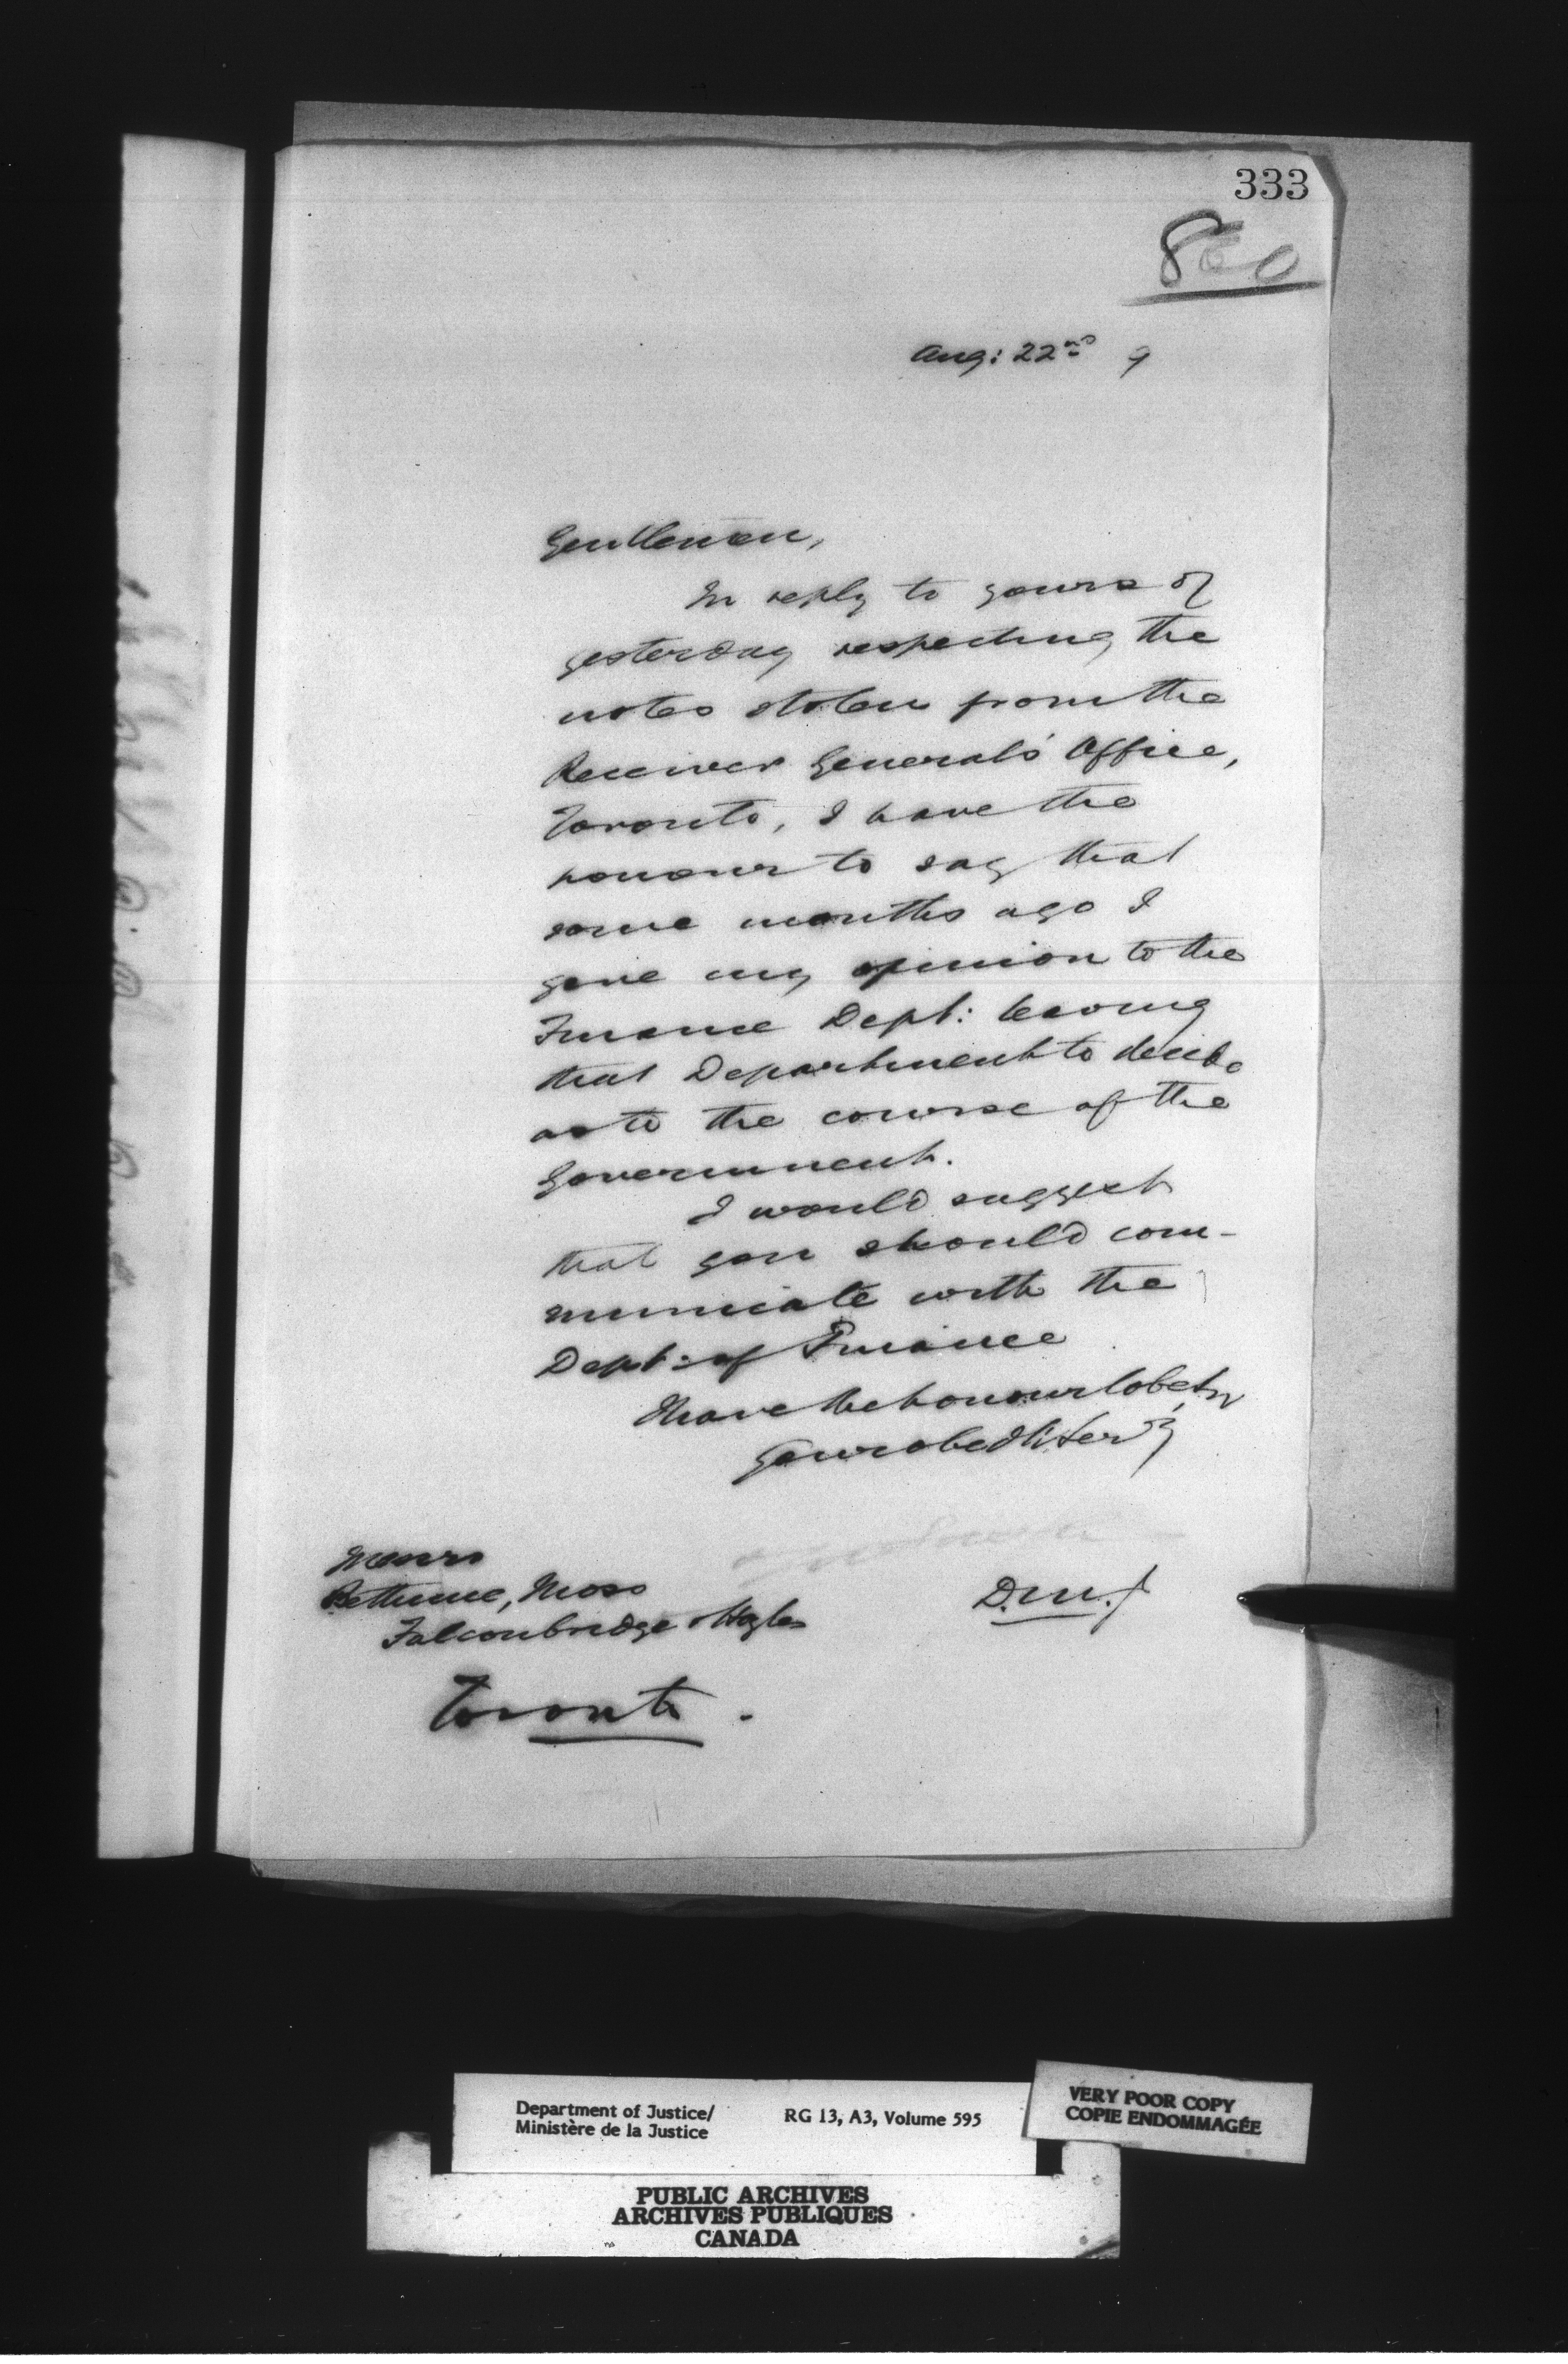 333
860
Aug: 22nd 9
Gentlemen,
In reply to yours of
yesterday respecting the
notes stolen from the
Receiver General's Office,
Toronto, I have the
honour to say that
some months ago I
gave my opinion to the
Finance Dept: leaving
that Department to decide
as to the course of the
Government.
I would suggest
that you should com-
municate with the
Dept: of Finance
I have the honour to be
Your obedt serv
Messrs
Bethune, Moss
Falconbridge & Hoyles
D.M.J
Toronto.
Department of Justice/
Ministère de la Justice
RG 13, A3, Volume 595
VERY POOR COPY
COPIE ENDOMMAGÉE
PUBLIC ARCHIVES
ARCHIVES PUBLIQUES
CANADA